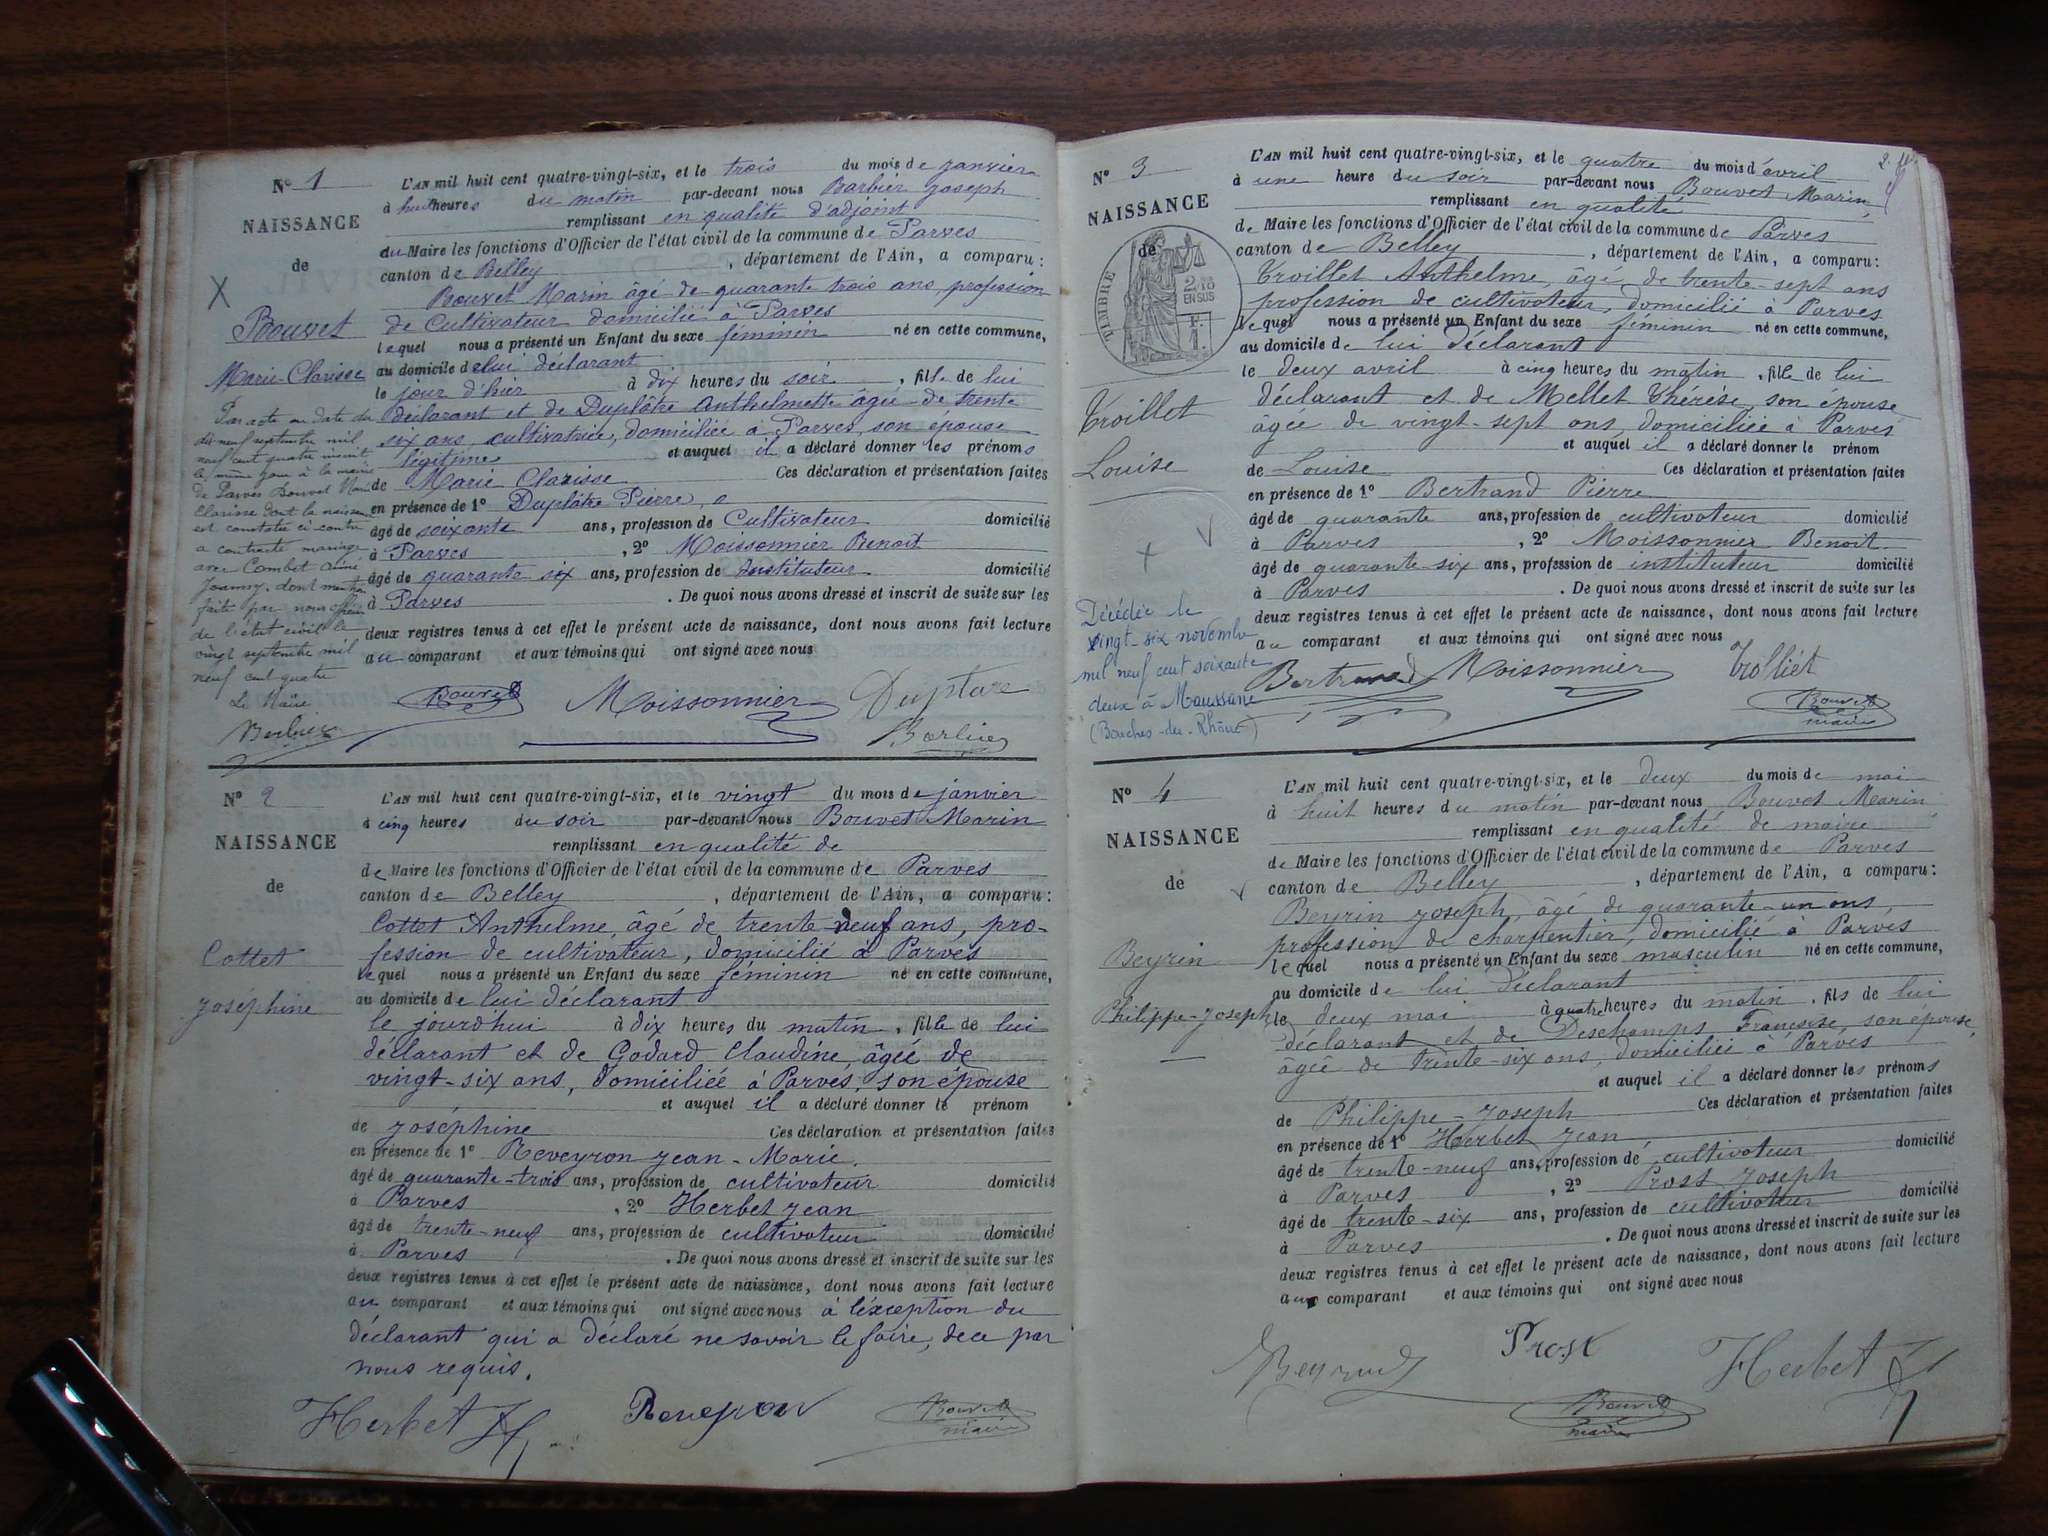 N° 1
NAISSANCE
de
Bouvet
Marie-Clarisse
Par acte en date du
dix neuf septembre mil
neuf cent quatre inscrit
le même jour à la mairie
de Parves Bouvet Marie
Clarisse dont la naissance
est constatée ci contre
a contracté mariage
avec Combet Aimé
Joanny, dont mention
faite par nous officier
de l'état civil le
vingt septembre mil
neuf cent quatre
Le Maire
L'AN mil huit cent quatre-vingt-six, et le trois du mois de janvier
à huit heures du matin par-devant nous Barbier Joseph
remplissant en qualité d'adjoint
du Maire les fonctions d'Officier de l'état civil de la commune de Parves
canton de Belley, département de l'Ain, a comparu:
Bouvet Marin âgé de quarante trois ans, profession
de Cultivateur domicilié à Parves
lequel nous a présenté un Enfant du sexe féminin né en cette commune,
au domicile de lui déclarant
le jour d'hier à dix heures du soir, fille de lui
déclarant et de Duplâtre Anthelmette âgée de trente
six ans, cultivatrice, domiciliée à Parves, son épouse
légitime et auquel il a déclaré donner les prénoms
de Marie Clarisse Ces déclaration et présentation faites
en présence de 1° Duplâtre Pierre,
âgé de soixante ans, profession de Cultivateur domicilié
à Parves, 2° Moissonnier Benoit
âgé de quarante six ans, profession de Instituteur domicilié
à Parves. De quoi nous avons dressé et inscrit de suite sur les
deux registres tenus à cet effet le présent acte de naissance, dont nous avons fait lecture
au comparant et aux témoins qui ont signé avec nous
Bouvet Moissonnier Duplatre
Barbier
N° 2
NAISSANCE
de
Cottet
Joséphine
L'AN mil huit cent quatre-vingt-six, et le vingt du mois de janvier
à cinq heures du soir par-devant nous Bouvet Marin
remplissant en qualité de
de Maire les fonctions d'Officier de l'état civil de la commune de Parves
canton de Belley, département de l'Ain, a comparu:
Cottet Anthelme, âgé de trente-neuf ans, pro-
fession de cultivateur, domicilié à Parves
lequel nous a présenté un Enfant du sexe féminin né en cette commune,
au domicile de lui déclarant
le jourd'hui à dix heures du matin, fille de lui
déclarant et de Godard Claudine, âgée de
vingt-six ans, domiciliée à Parves, son épouse
et auquel il a déclaré donner le prénom
de Joséphine Ces déclaration et présentation faites
en présence de 1° Reveyron Jean-Marie,
âgé de quarante-trois ans, profession de cultivateur domicilié
à Parves, 2° Herbet Jean
âgé de trente-neuf ans, profession de cultivateur domicilié
à Parves. De quoi nous avons dressé et inscrit de suite sur les
deux registres tenus à cet effet le présent acte de naissance, dont nous avons fait lecture
au comparant et aux témoins qui ont signé avec nous à l'exception du
déclarant qui a déclaré ne savoir le faire, de ce par
nous requis.
Herbet Reveyron Bouvet
maire
N° 3
NAISSANCE
de
TIMBRE
EN SUS
F.
1.
Troillet
Louise
Décédée le
vingt-six novembre
mil neuf cent soixante
deux à Maussane
(Bouches-du-Rhône)
L'AN mil huit cent quatre-vingt-six, et le quatre du mois d'avril
à une heure du soir par-devant nous Bouvet Marin,
remplissant en qualité
de Maire les fonctions d'Officier de l'état civil de la commune de Parves
canton de Belley, département de l'Ain, a comparu:
Troillet Anthelme, âgé de trente-sept ans
profession de cultivateur, domicilié à Parves
lequel nous a présenté un Enfant du sexe féminin né en cette commune,
au domicile de lui déclarant
le deux avril à cinq heures du matin, fille de lui
déclarant et de Mellet Thérèse, son épouse
âgée de vingt-sept ans, domiciliée à Parves
et auquel il a déclaré donner le prénom
de Louise Ces déclaration et présentation faites
en présence de 1° Bertrand Pierre
âgé de quarante ans, profession de cultivateur domicilié
à Parves, 2° Moissonnier Benoit
âgé de quarante-six ans, profession de instituteur domicilié
à Parves. De quoi nous avons dressé et inscrit de suite sur les
deux registres tenus à cet effet le présent acte de naissance, dont nous avons fait lecture
au comparant et aux témoins qui ont signé avec nous
Bertrand Moissonnier Trolliet
Bouvet
maire
N° 4
NAISSANCE
de
Beyrin
Philippe-Joseph
L'AN mil huit cent quatre-vingt-six, et le deux du mois de mai
à huit heures du matin par-devant nous Bouvet Marin
remplissant en qualité de maire
de Maire les fonctions d'Officier de l'état civil de la commune de Parves
canton de Belley, département de l'Ain, a comparu:
Beyrin Joseph, âgé de quarante-un ans,
profession de charpentier, domicilié à Parves
lequel nous a présenté un Enfant du sexe masculin né en cette commune,
au domicile de lui déclarant
le deux mai à quatre heures du matin, fils de lui
déclarant et de Deschamps Françoise, son épouse,
âgée de trente-six ans, domiciliée à Parves
et auquel il a déclaré donner les prénoms
de Philippe-Joseph Ces déclaration et présentation faites
en présence de 1° Herbet Jean
âgé de trente-neuf ans, profession de cultivateur domicilié
à Parves, 2° Prost Joseph
âgé de trente-six ans, profession de cultivateur domicilié
à Parves. De quoi nous avons dressé et inscrit de suite sur les
deux registres tenus à cet effet le présent acte de naissance, dont nous avons fait lecture
aux comparant et aux témoins qui ont signé avec nous
Prost Herbet
Bouvet
maire